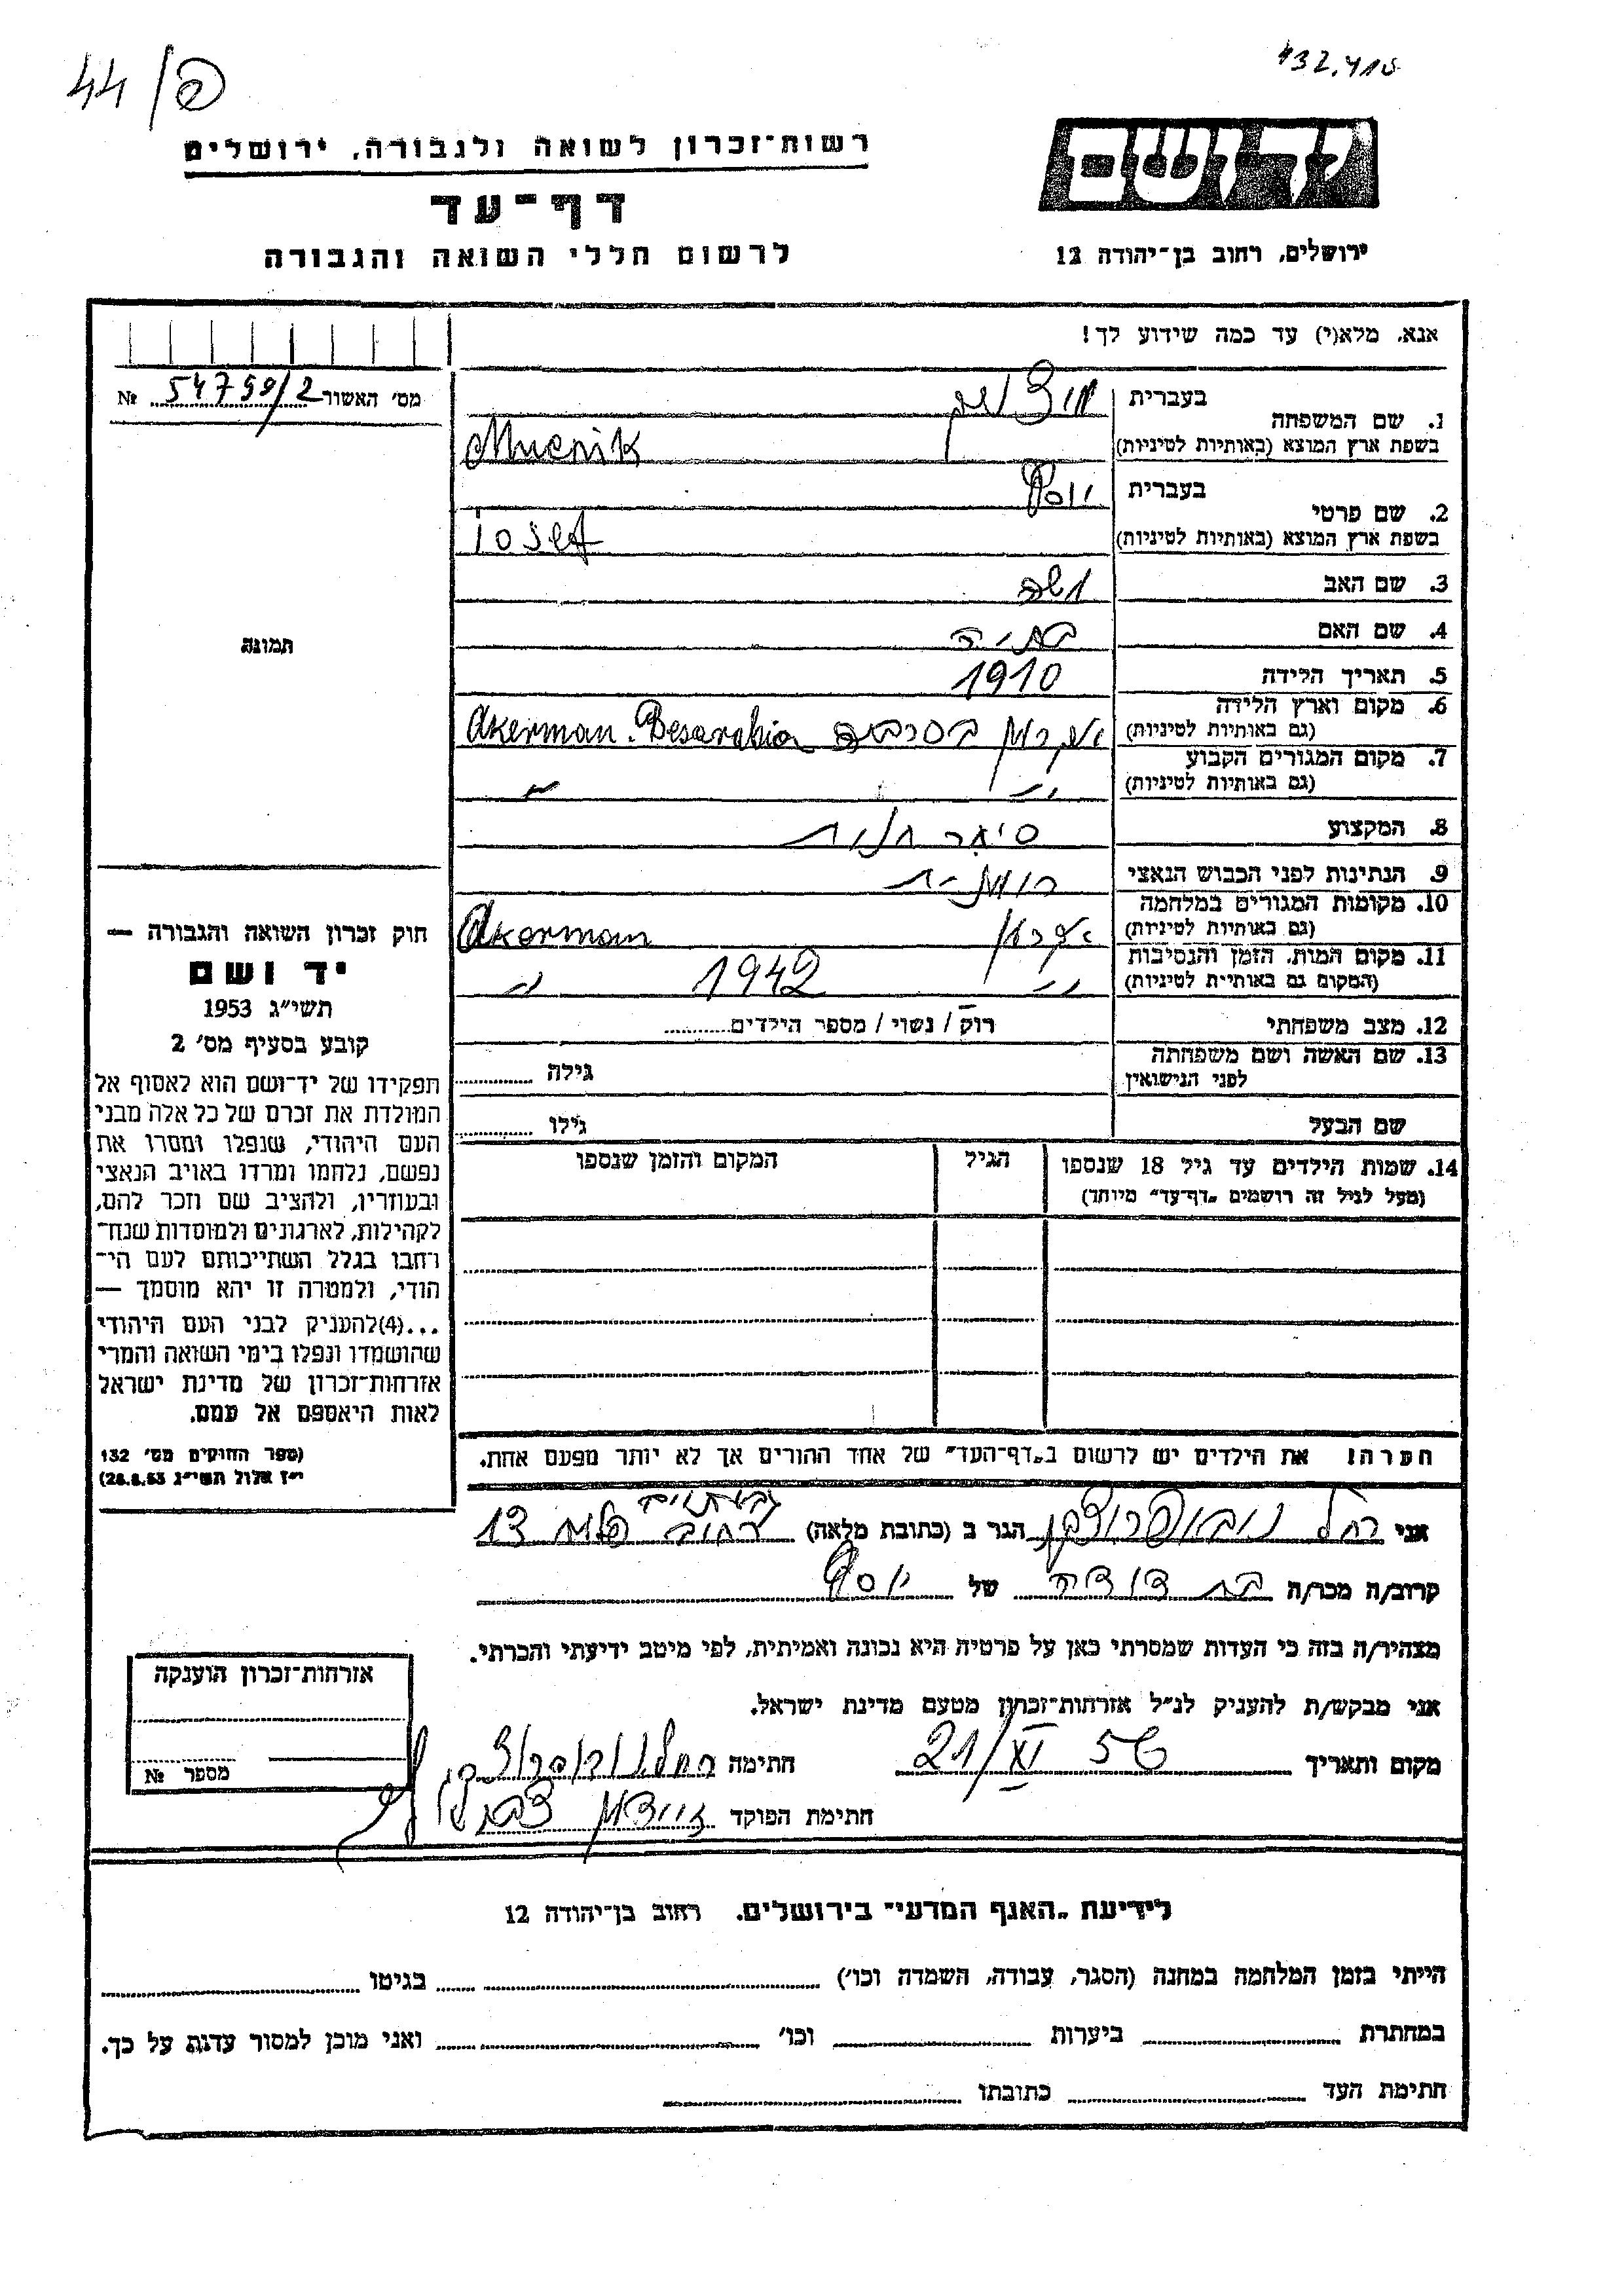 44/פ
432.415
רשות־זכרון לשואה ולגבורה, ירושלים
יד ושם
דף־עד
לרשום חללי השואה והגבורה
ירושלים, רחוב בן־יהודה 12
אנא, מלא(י) עד כמה שידוע לך!
מס׳ האשור 54759/2 №
1. שם המשפחה
בעברית
בשפת ארץ המוצא (באותיות לטיניות) Mucnik
2. שם פרטי
בעברית יוסף
בשפת ארץ המוצא (באותיות לטיניות) Iosef
3. שם האב משה
4. שם האם בתיה
5. תאריך הלידה 1910
6. מקום וארץ הלידה
(גם באותיות לטיניות) אקרמן בסרביה Akerman. Besarabia
7. מקום המגורים הקבוע
(גם באותיות לטיניות) " "
8. המקצוע
9. הנתינות לפני הכבוש הנאצי רומנית
10. מקומות המגורים במלחמה
(גם באותיות לטיניות) אקרמן Akerman
11. מקום המות, הזמן והנסיבות
(המקום גם באותיות לטיניות) " 1942 "
12. מצב משפחתי רוק / נשוי / מספר הילדים
13. שם האשה ושם משפחתה
לפני הנישואין גילה
שם הבעל גילו
14. שמות הילדים עד גיל 18 שנספו הגיל המקום והזמן שנספו
(מעל לגיל זה רושמים „דף־עד" מיוחד)
תמונה
חוק זכרון השואה והגבורה —
יד ושם
תשי״ג 1953
קובע בסעיף מס׳ 2
תפקידו של יד־ושם הוא לאסוף אל
המולדת את זכרם של כל אלה מבני
העם היהודי, שנפלו ומסרו את
נפשם, נלחמו ומרדו באויב הנאצי
ובעוזריו, ולהציב שם וזכר להם,
לקהילות, לארגונים ולמוסדות שנח־
רחבו בגלל השתייכותם לעם הי־
הודי, ולמטרה זו יהא מוסמך —
...(4)להעניק לבני העם היהודי
שהושמדו ונפלו בימי השואה והמרי
אזרחות־זכרון של מדינת ישראל
לאות היאספם אל עמם.
(ספר החוקים מס׳ 132
י״ז אלול תשי״ג 28.8.53)
הערה! את הילדים יש לרשום ב„דף־העד" של אחד ההורים אך לא יותר מפעם אחת.
אני רחל הגר ב (כתובת מלאה) גבעתיים רחוב 13
קרוב/ה מכר/ה בת דודה של יוסף
מצהיר/ה בזה כי העדות שמסרתי כאן על פרטיה היא נכונה ואמיתית, לפי מיטב ידיעתי והכרתי.
אני מבקש/ת להעניק לנ״ל אזרחות־זכרון מטעם מדינת ישראל.
מקום ותאריך 21/XI 56 חתימה
חתימת הפוקד
אזרחות־זכרון הוענקה
מספר №
לידיעת „האגף המדעי" בירושלים. רחוב בן־יהודה 12
הייתי בזמן המלחמה במחנה (הסגר, עבודה, השמדה וכו׳) בגיטו
במחתרת ביערות וכו׳ ואני מוכן למסור עדות על כך.
חתימת העד כתובתו